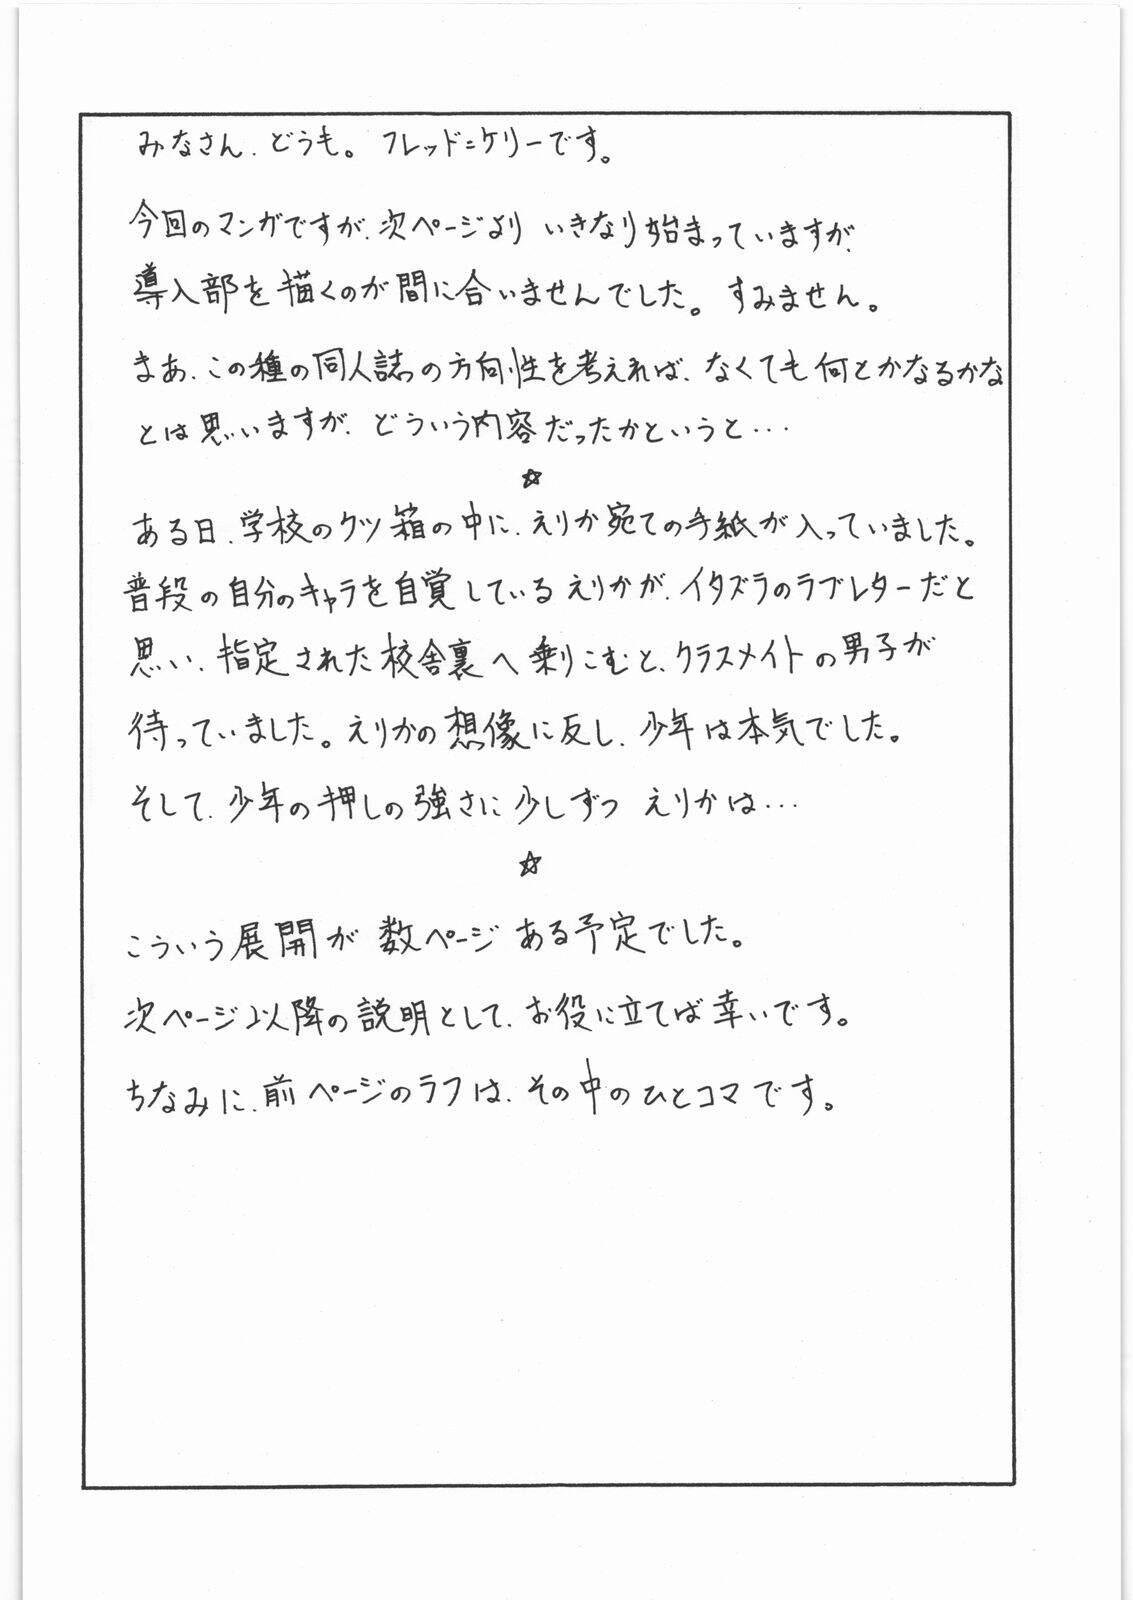 みなさん、どうも。フレッド=ケリーです。
今回のマンガですが、次ページより いきなり始まっていますが、
導入部を描くのが間に合いませんでした。すみません。
まあ、この種の同人誌の方向性を考えれば、なくても何とかなるかな
とは思いますが、どういう内容だったかというと…
☆
ある日、学校のクツ箱の中に、えりか宛ての手紙が入っていました。
普段の自分のキャラを自覚しているえりかが、イタズラのラブレターだと
思い、指定された校舎裏へ乗りこむと、クラスメイトの男子が
待っていました。えりかの想像に反し、少年は本気でした。
そして、少年の押しの強さに少しずつ えりかは…
☆
こういう展開が数ページある予定でした。
次ページ以降の説明として、お役に立てば幸いです。
ちなみに、前ページのラフは、その中のひとコマです。